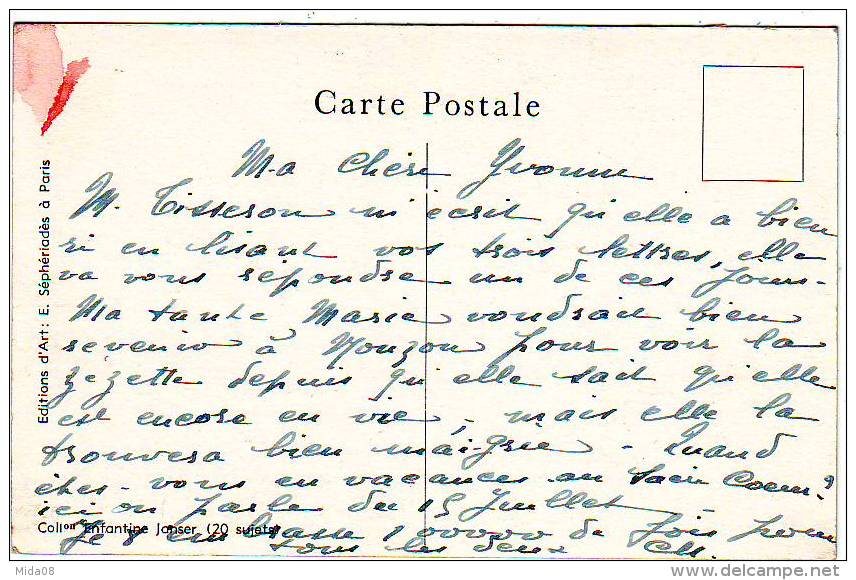 Carte Postale
Ma chère Yvonne
M. Tisseron m'écrit qu'elle a bien
ri en lisant vos trois lettres, elle
va vous répondre un de ces jours.
Ma tante Marie voudrait bien
revenir à Mouzon pour voir la
Zézette depuis qu'elle sait qu'elle
est encore en vie, mais elle la
trouvera bien maigrie - Quand
êtes-vous en vacances au Sacré Coeur ?
ici on parle du 15 Juillet -
Je embrasse 1 000000 de fois pour
tous les deux
Editions d'Art : E. Séphériadès à Paris
Collon Enfantine Janser (20 sujets)
Mida08
www.delcampe.net